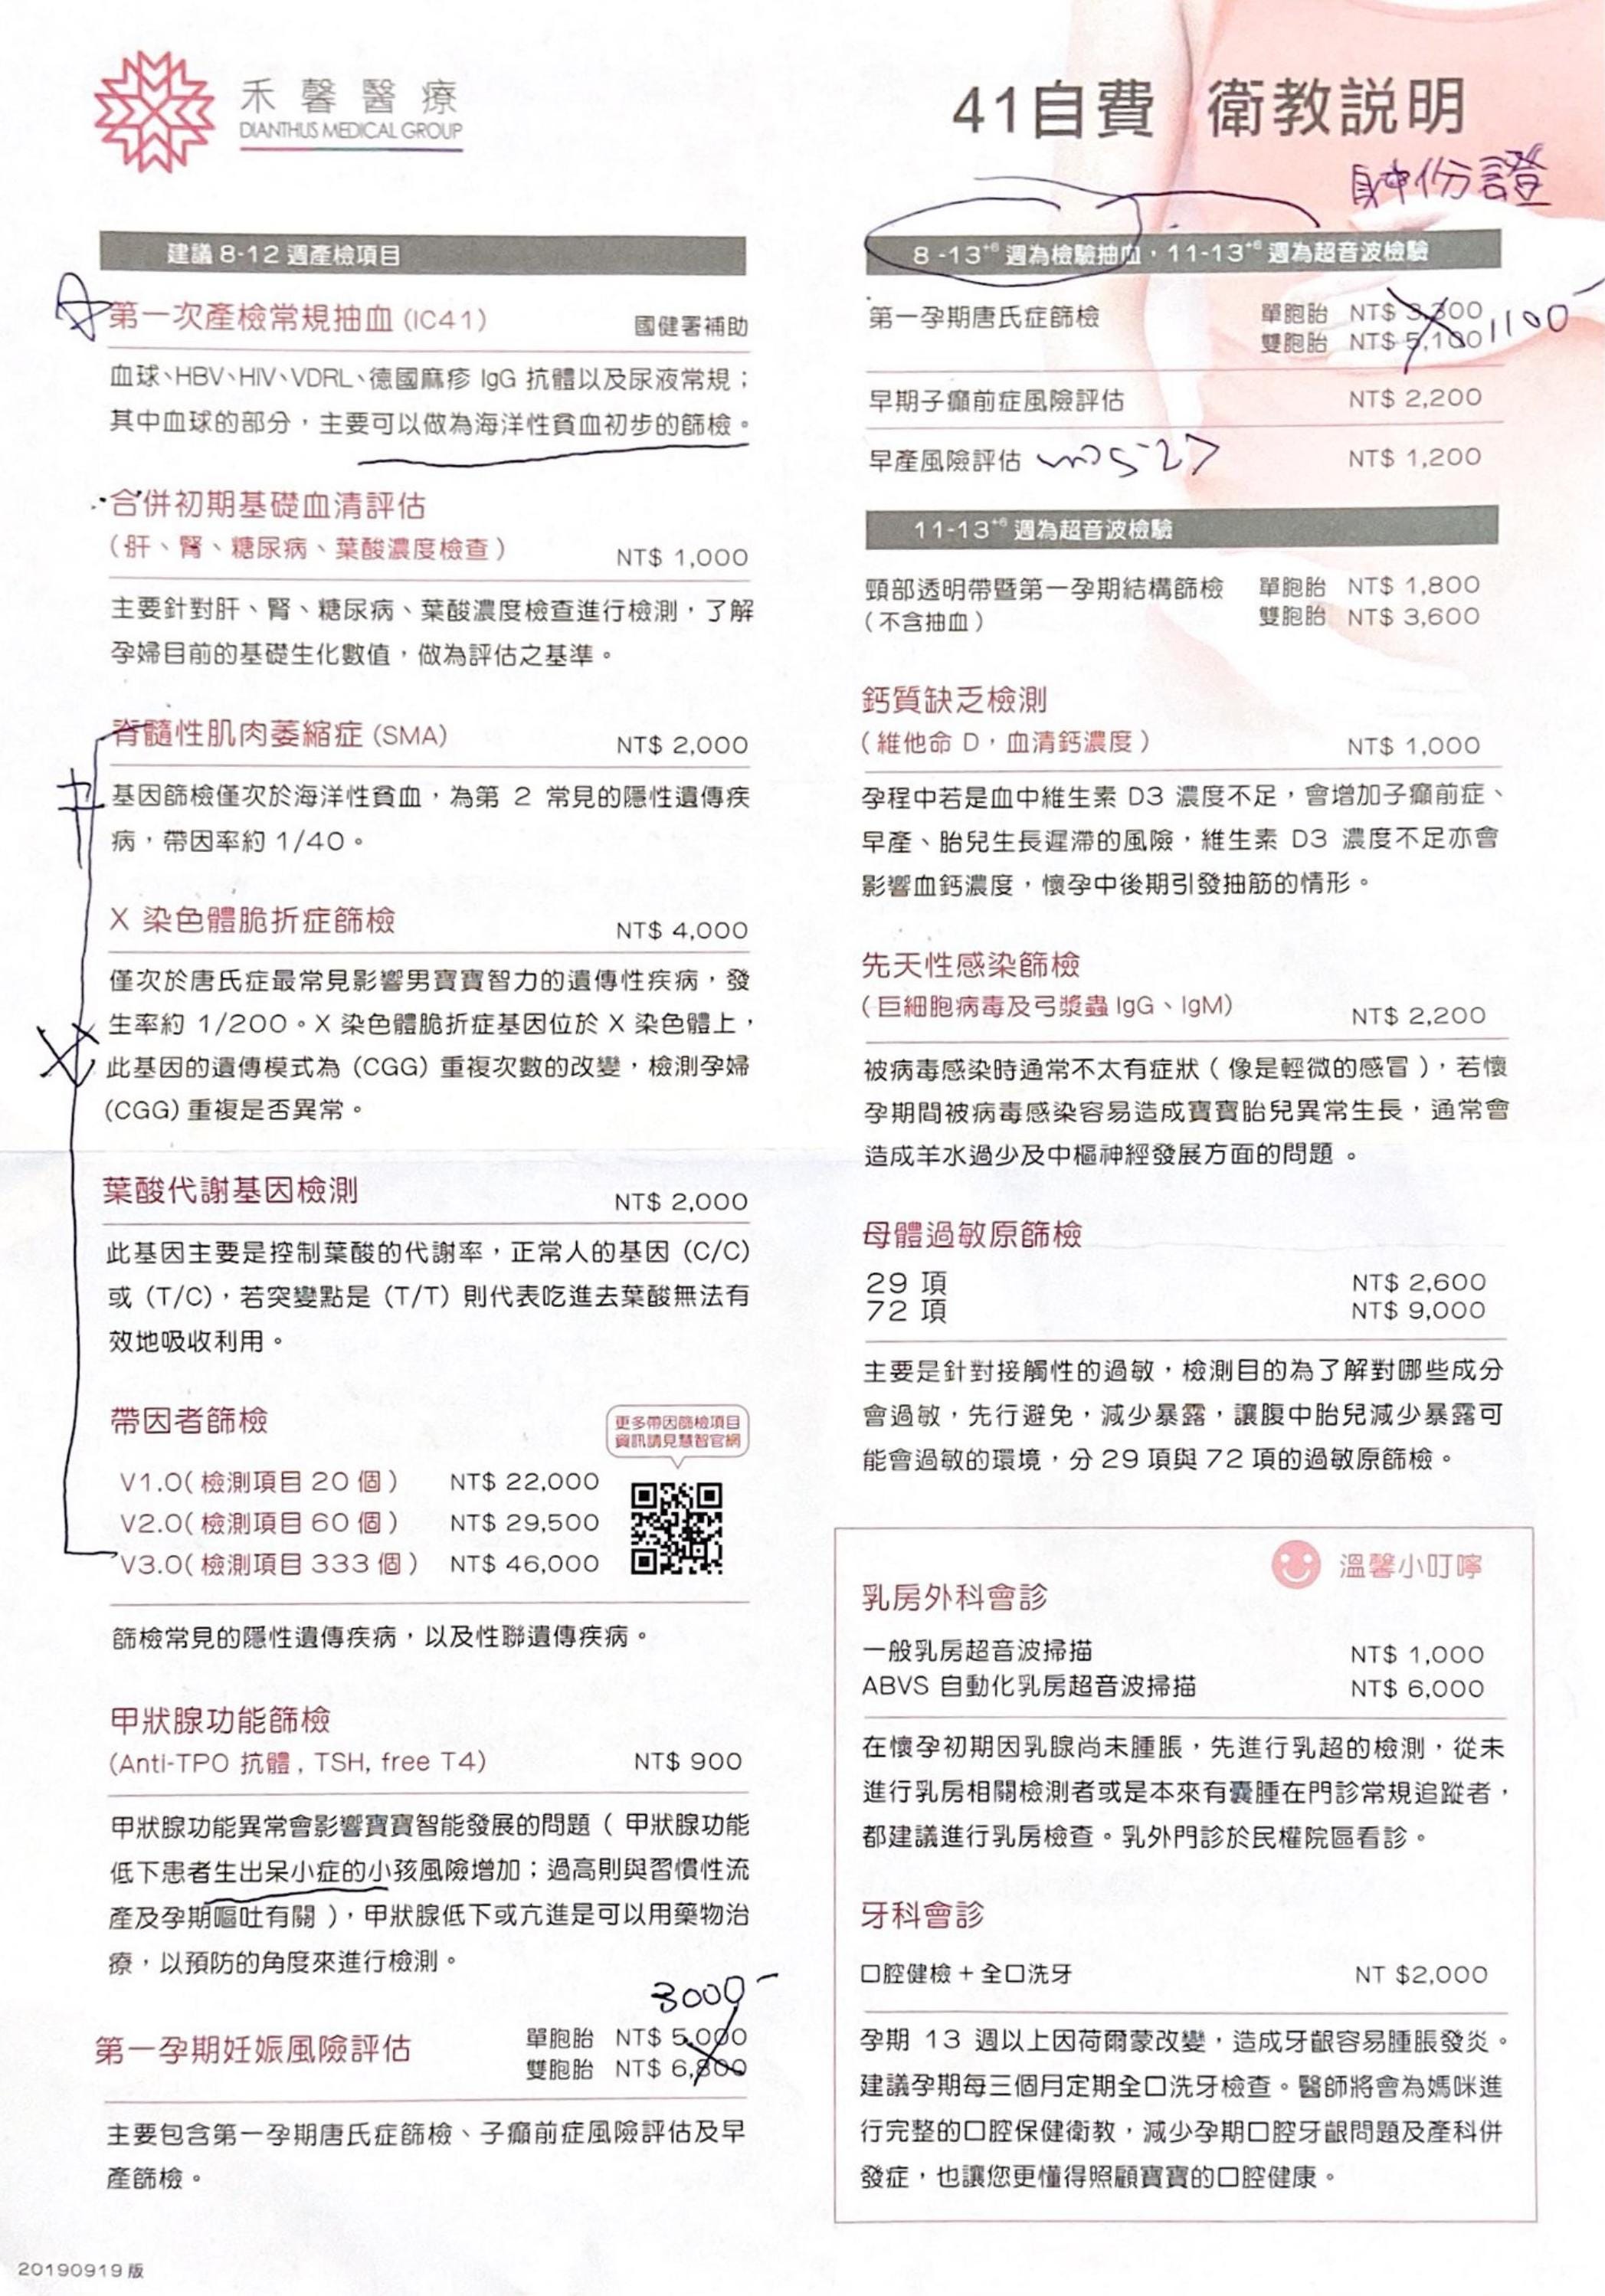 禾馨醫療
DIANTHUS MEDICAL GROUP
41自費 衛教説明
身份證
建議 8-12 週產檢項目
第一次產檢常規抽血 (IC41) 國健署補助
血球、HBV、HIV、VDRL、德國麻疹 IgG 抗體以及尿液常規；
其中血球的部分，主要可以做為海洋性貧血初步的篩檢。
合併初期基礎血清評估
（肝、腎、糖尿病、葉酸濃度檢查） NT$ 1,000
主要針對肝、腎、糖尿病、葉酸濃度檢查進行檢測，了解
孕婦目前的基礎生化數值，做為評估之基準。
脊髓性肌肉萎縮症 (SMA) NT$ 2,000
基因篩檢僅次於海洋性貧血，為第 2 常見的隱性遺傳疾
病，帶因率約 1/40。
X 染色體脆折症篩檢 NT$ 4,000
僅次於唐氏症最常見影響男寶寶智力的遺傳性疾病，發
生率約 1/200。X 染色體脆折症基因位於 X 染色體上，
此基因的遺傳模式為 (CGG) 重複次數的改變，檢測孕婦
(CGG) 重複是否異常。
葉酸代謝基因檢測 NT$ 2,000
此基因主要是控制葉酸的代謝率，正常人的基因 (C/C)
或 (T/C)，若突變點是 (T/T) 則代表吃進去葉酸無法有
效地吸收利用。
帶因者篩檢
更多帶因篩檢項目
資訊請見慧智官網
V1.0( 檢測項目 20 個 ) NT$ 22,000
V2.0( 檢測項目 60 個 ) NT$ 29,500
V3.0( 檢測項目 333 個 ) NT$ 46,000
篩檢常見的隱性遺傳疾病，以及性聯遺傳疾病。
甲狀腺功能篩檢
(Anti-TPO 抗體 , TSH, free T4) NT$ 900
甲狀腺功能異常會影響寶寶智能發展的問題（ 甲狀腺功能
低下患者生出呆小症的小孩風險增加；過高則與習慣性流
產及孕期嘔吐有關 ），甲狀腺低下或亢進是可以用藥物治
療，以預防的角度來進行檢測。
3000-
第一孕期妊娠風險評估 單胞胎 NT$ 5,000
雙胞胎 NT$ 6,800
主要包含第一孕期唐氏症篩檢、子癲前症風險評估及早
產篩檢。
20190919 版
8 -13+6 週為檢驗抽血，11-13+6 週為超音波檢驗
第一孕期唐氏症篩檢 單胞胎 NT$ 3,300
雙胞胎 NT$ 5,100 1100-
早期子癲前症風險評估 NT$ 2,200
早產風險評估 NT$ 1,200
11-13+6 週為超音波檢驗
頸部透明帶暨第一孕期結構篩檢 單胞胎 NT$ 1,800
（不含抽血） 雙胞胎 NT$ 3,600
鈣質缺乏檢測
（維他命 D，血清鈣濃度） NT$ 1,000
孕程中若是血中維生素 D3 濃度不足，會增加子癲前症、
早產、胎兒生長遲滯的風險，維生素 D3 濃度不足亦會
影響血鈣濃度，懷孕中後期引發抽筋的情形。
先天性感染篩檢
（巨細胞病毒及弓漿蟲 IgG、IgM) NT$ 2,200
被病毒感染時通常不太有症狀（ 像是輕微的感冒 ），若懷
孕期間被病毒感染容易造成寶寶胎兒異常生長，通常會
造成羊水過少及中樞神經發展方面的問題 。
母體過敏原篩檢
29 項 NT$ 2,600
72 項 NT$ 9,000
主要是針對接觸性的過敏，檢測目的為了解對哪些成分
會過敏，先行避免，減少暴露，讓腹中胎兒減少暴露可
能會過敏的環境，分 29 項與 72 項的過敏原篩檢。
溫馨小叮嚀
乳房外科會診
一般乳房超音波掃描 NT$ 1,000
ABVS 自動化乳房超音波掃描 NT$ 6,000
在懷孕初期因乳腺尚未腫脹，先進行乳超的檢測，從未
進行乳房相關檢測者或是本來有囊腫在門診常規追蹤者，
都建議進行乳房檢查。乳外門診於民權院區看診。
牙科會診
口腔健檢 + 全口洗牙 NT $2,000
孕期 13 週以上因荷爾蒙改變，造成牙齦容易腫脹發炎。
建議孕期每三個月定期全口洗牙檢查。醫師將會為媽咪進
行完整的口腔保健衛教，減少孕期口腔牙齦問題及產科併
發症，也讓您更懂得照顧寶寶的口腔健康。